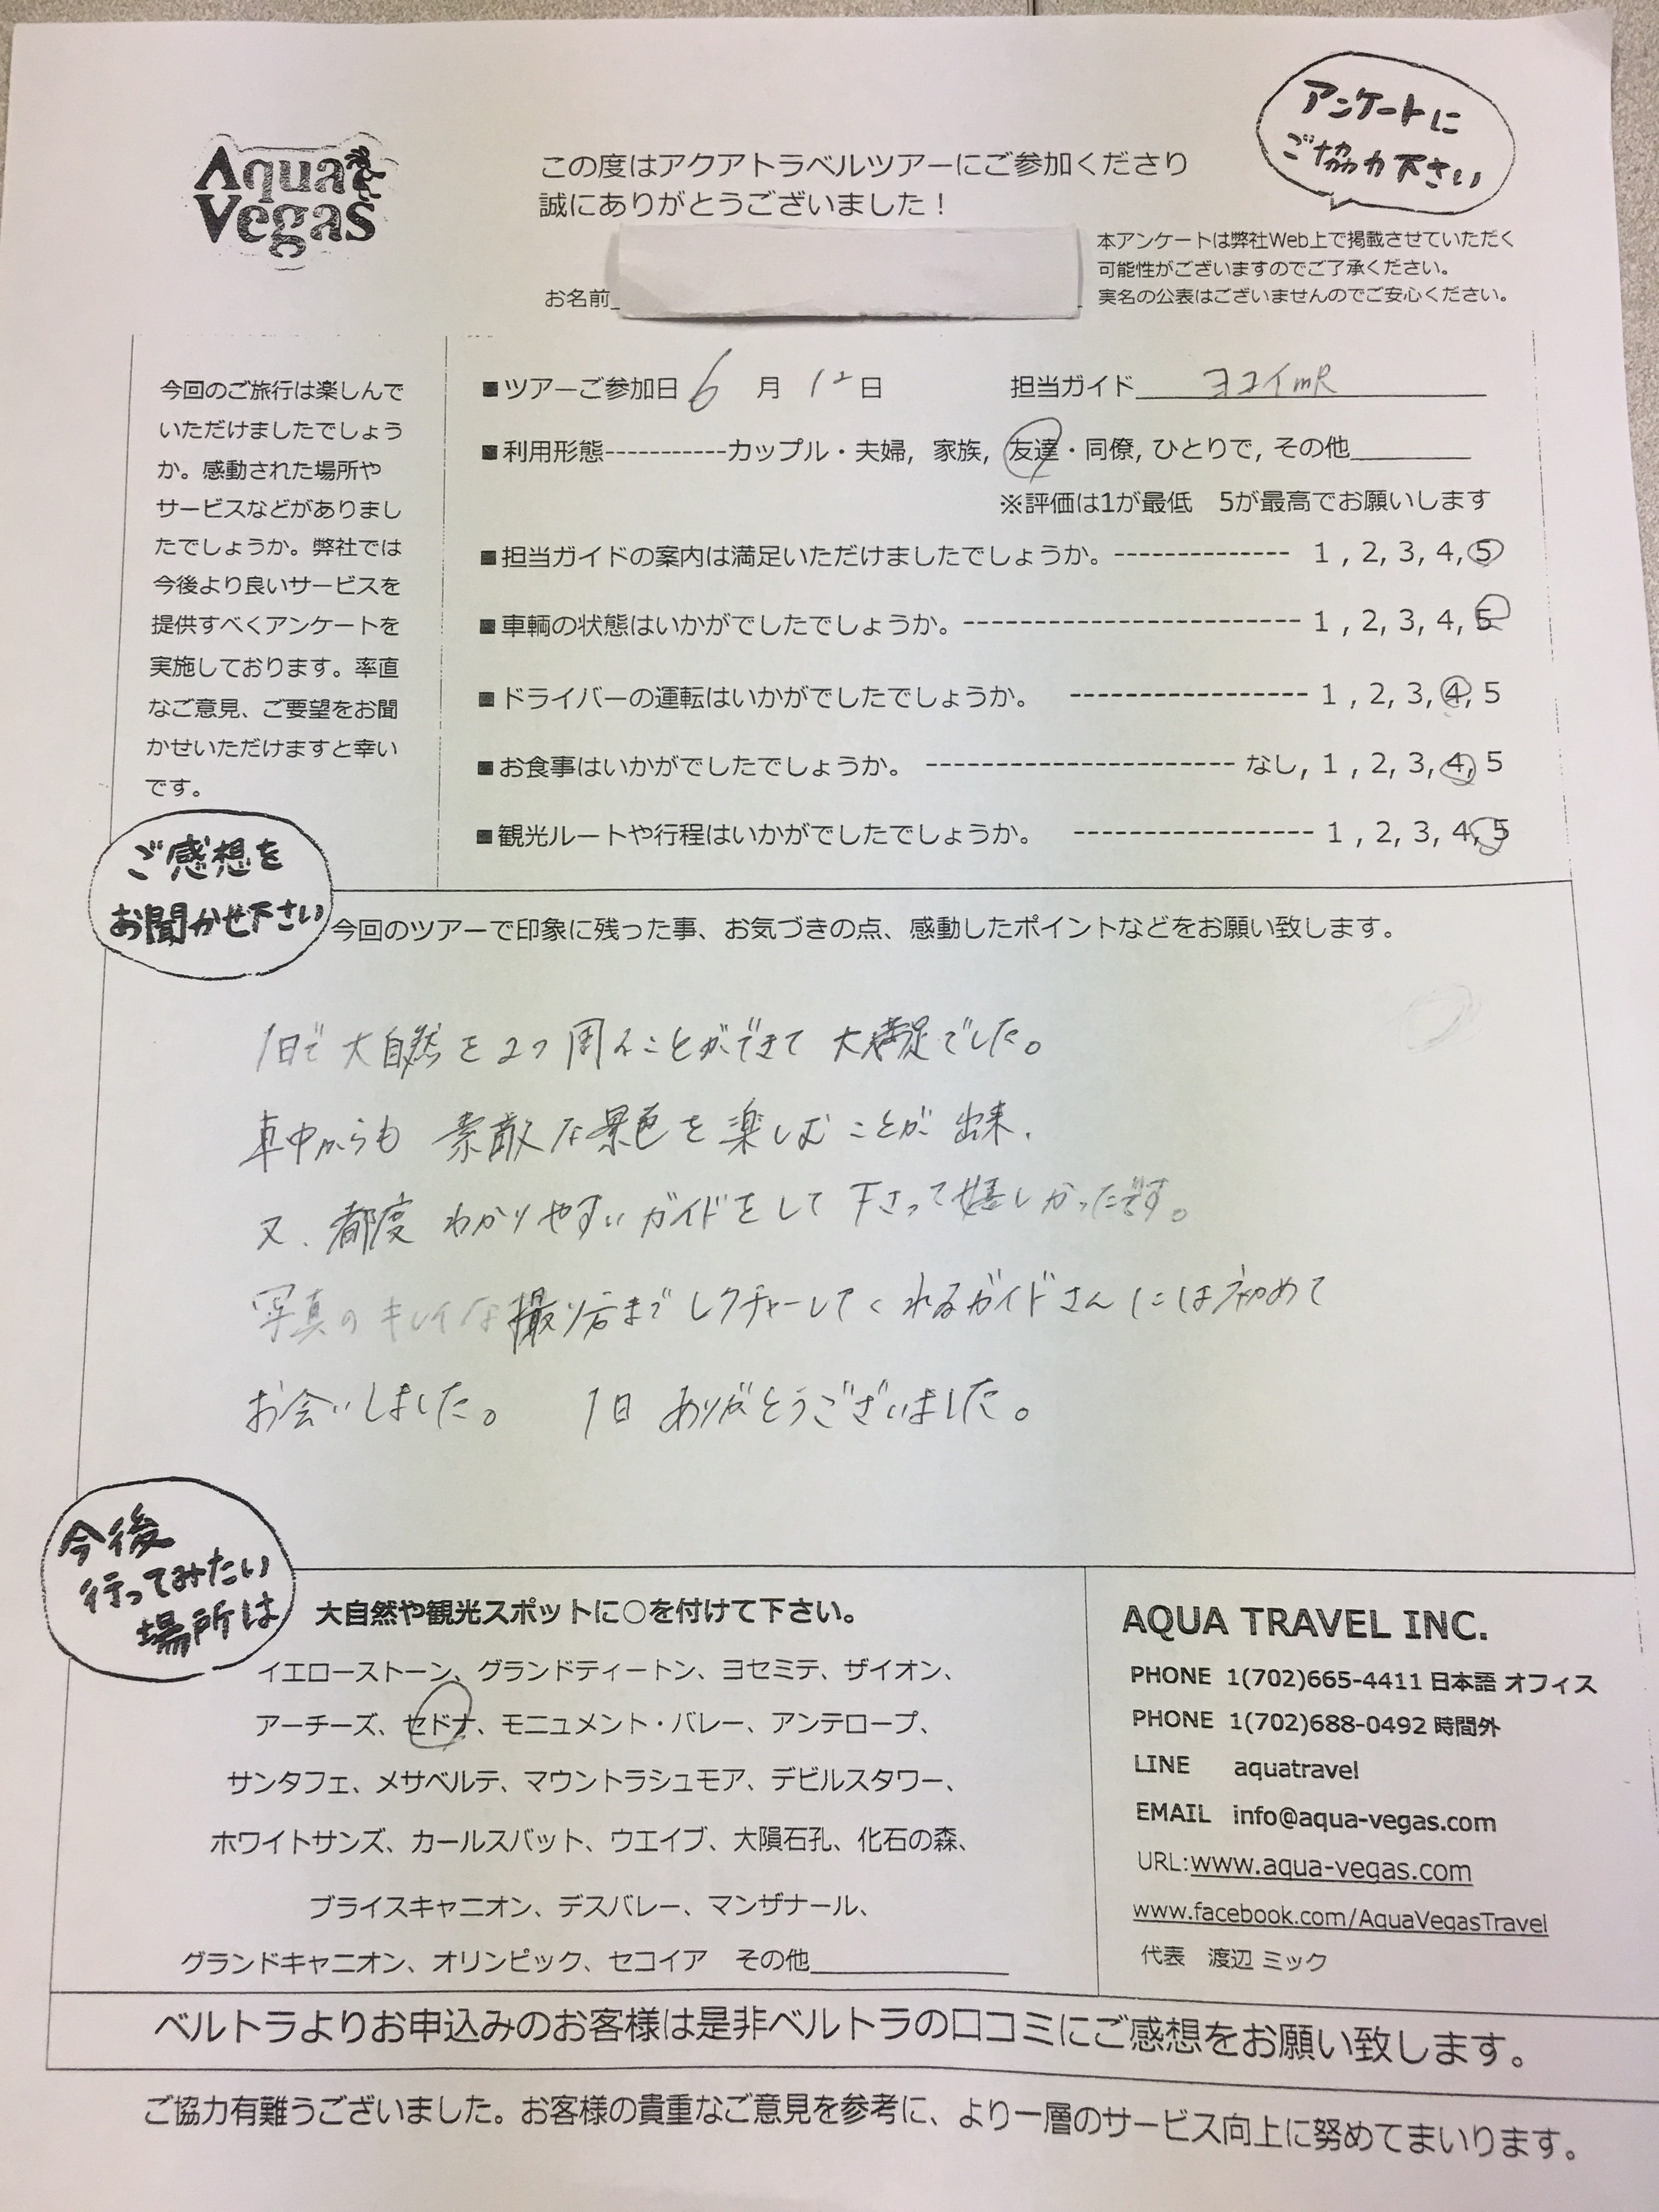 Aqua
Vegas
この度はアクアトラベルツアーにご参加くださり
誠にありがとうございました！
アンケートに
ご協力下さい
本アンケートは弊社Web上で掲載させていただく
可能性がございますのでご了承ください。
実名の公表はございませんのでご安心ください。
お名前
今回のご旅行は楽しんで
いただけましたでしょう
か。感動された場所や
サービスなどがありまし
たでしょうか。弊社では
今後より良いサービスを
提供すべくアンケートを
実施しております。率直
なご意見、ご要望をお聞
かせいただけますと幸い
です。
■ツアーご参加日 6 月 12 日 担当ガイド ヨコイmR
■利用形態-----------カップル・夫婦, 家族, 友達・同僚, ひとりで, その他
※評価は1が最低 5が最高でお願いします
■担当ガイドの案内は満足いただけましたでしょうか。-------------- 1 , 2, 3, 4, 5
■車輌の状態はいかがでしたでしょうか。--------------------------- 1 , 2, 3, 4, 5
■ドライバーの運転はいかがでしたでしょうか。 ----------------- 1 , 2, 3, 4, 5
■お食事はいかがでしたでしょうか。 ------------------------- なし, 1 , 2, 3, 4, 5
■観光ルートや行程はいかがでしたでしょうか。 ------------------- 1 , 2, 3, 4, 5
ご感想を
お聞かせ下さい
今回のツアーで印象に残った事、お気づきの点、感動したポイントなどをお願い致します。
1日で大自然を2つ周ることができて大満足でした。
車中からも素敵な景色を楽しむことが出来、
又、都度わかりやすいガイドをして下さって嬉しかったです。
写真のキレイな撮り方までレクチャーしてくれるガイドさんには初めて
お会いしました。 1日ありがとうございました。
今後
行ってみたい
場所は
大自然や観光スポットに○を付けて下さい。
イエローストーン、グランドティートン、ヨセミテ、ザイオン、
アーチーズ、セドナ、モニュメント・バレー、アンテロープ、
サンタフェ、メサベルテ、マウントラシュモア、デビルスタワー、
ホワイトサンズ、カールスバット、ウエイブ、大隕石孔、化石の森、
ブライスキャニオン、デスバレー、マンザナール、
グランドキャニオン、オリンピック、セコイア その他
AQUA TRAVEL INC.
PHONE 1(702)665-4411 日本語 オフィス
PHONE 1(702)688-0492 時間外
LINE aquatravel
EMAIL info@aqua-vegas.com
URL:www.aqua-vegas.com
www.facebook.com/AquaVegasTravel
代表 渡辺 ミック
ベルトラよりお申込みのお客様は是非ベルトラの口コミにご感想をお願い致します。
ご協力有難うございました。お客様の貴重なご意見を参考に、より一層のサービス向上に努めてまいります。